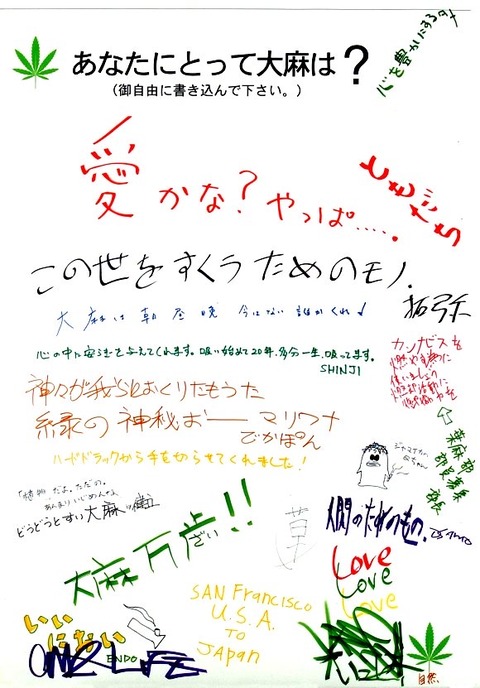 あなたにとって大麻は？
（御自由に書き込んで下さい。）
心を豊かにするタネ
愛かな？やっぱ……．
ともだち
この世をすくうためのモノ．
拓弥
大麻は朝昼晩 今はない 誰かくれ♪
心の中に安らぎを与えてくれます。吸い始めて20年、多分一生、吸ってます。
SHINJI
カンナビスを
神々が我らにおくりたもうた
緑の神秘よ── マリワナ
でかぽん
ハードドラッグから手を切らせてくれました！
ジャマイカの
葉麻部
部員募集
部長
「植物」だよ、ただの。
あんまりいじめんなよ
どうどうとすいたい大麻
人間のためのもの．
大麻万歳!!
ざい
草
Love
Love
Love
SAN Francisco
U.S.A.
TO
JAPAN
いい
におい
ENDO
ONE LIFE
自然、